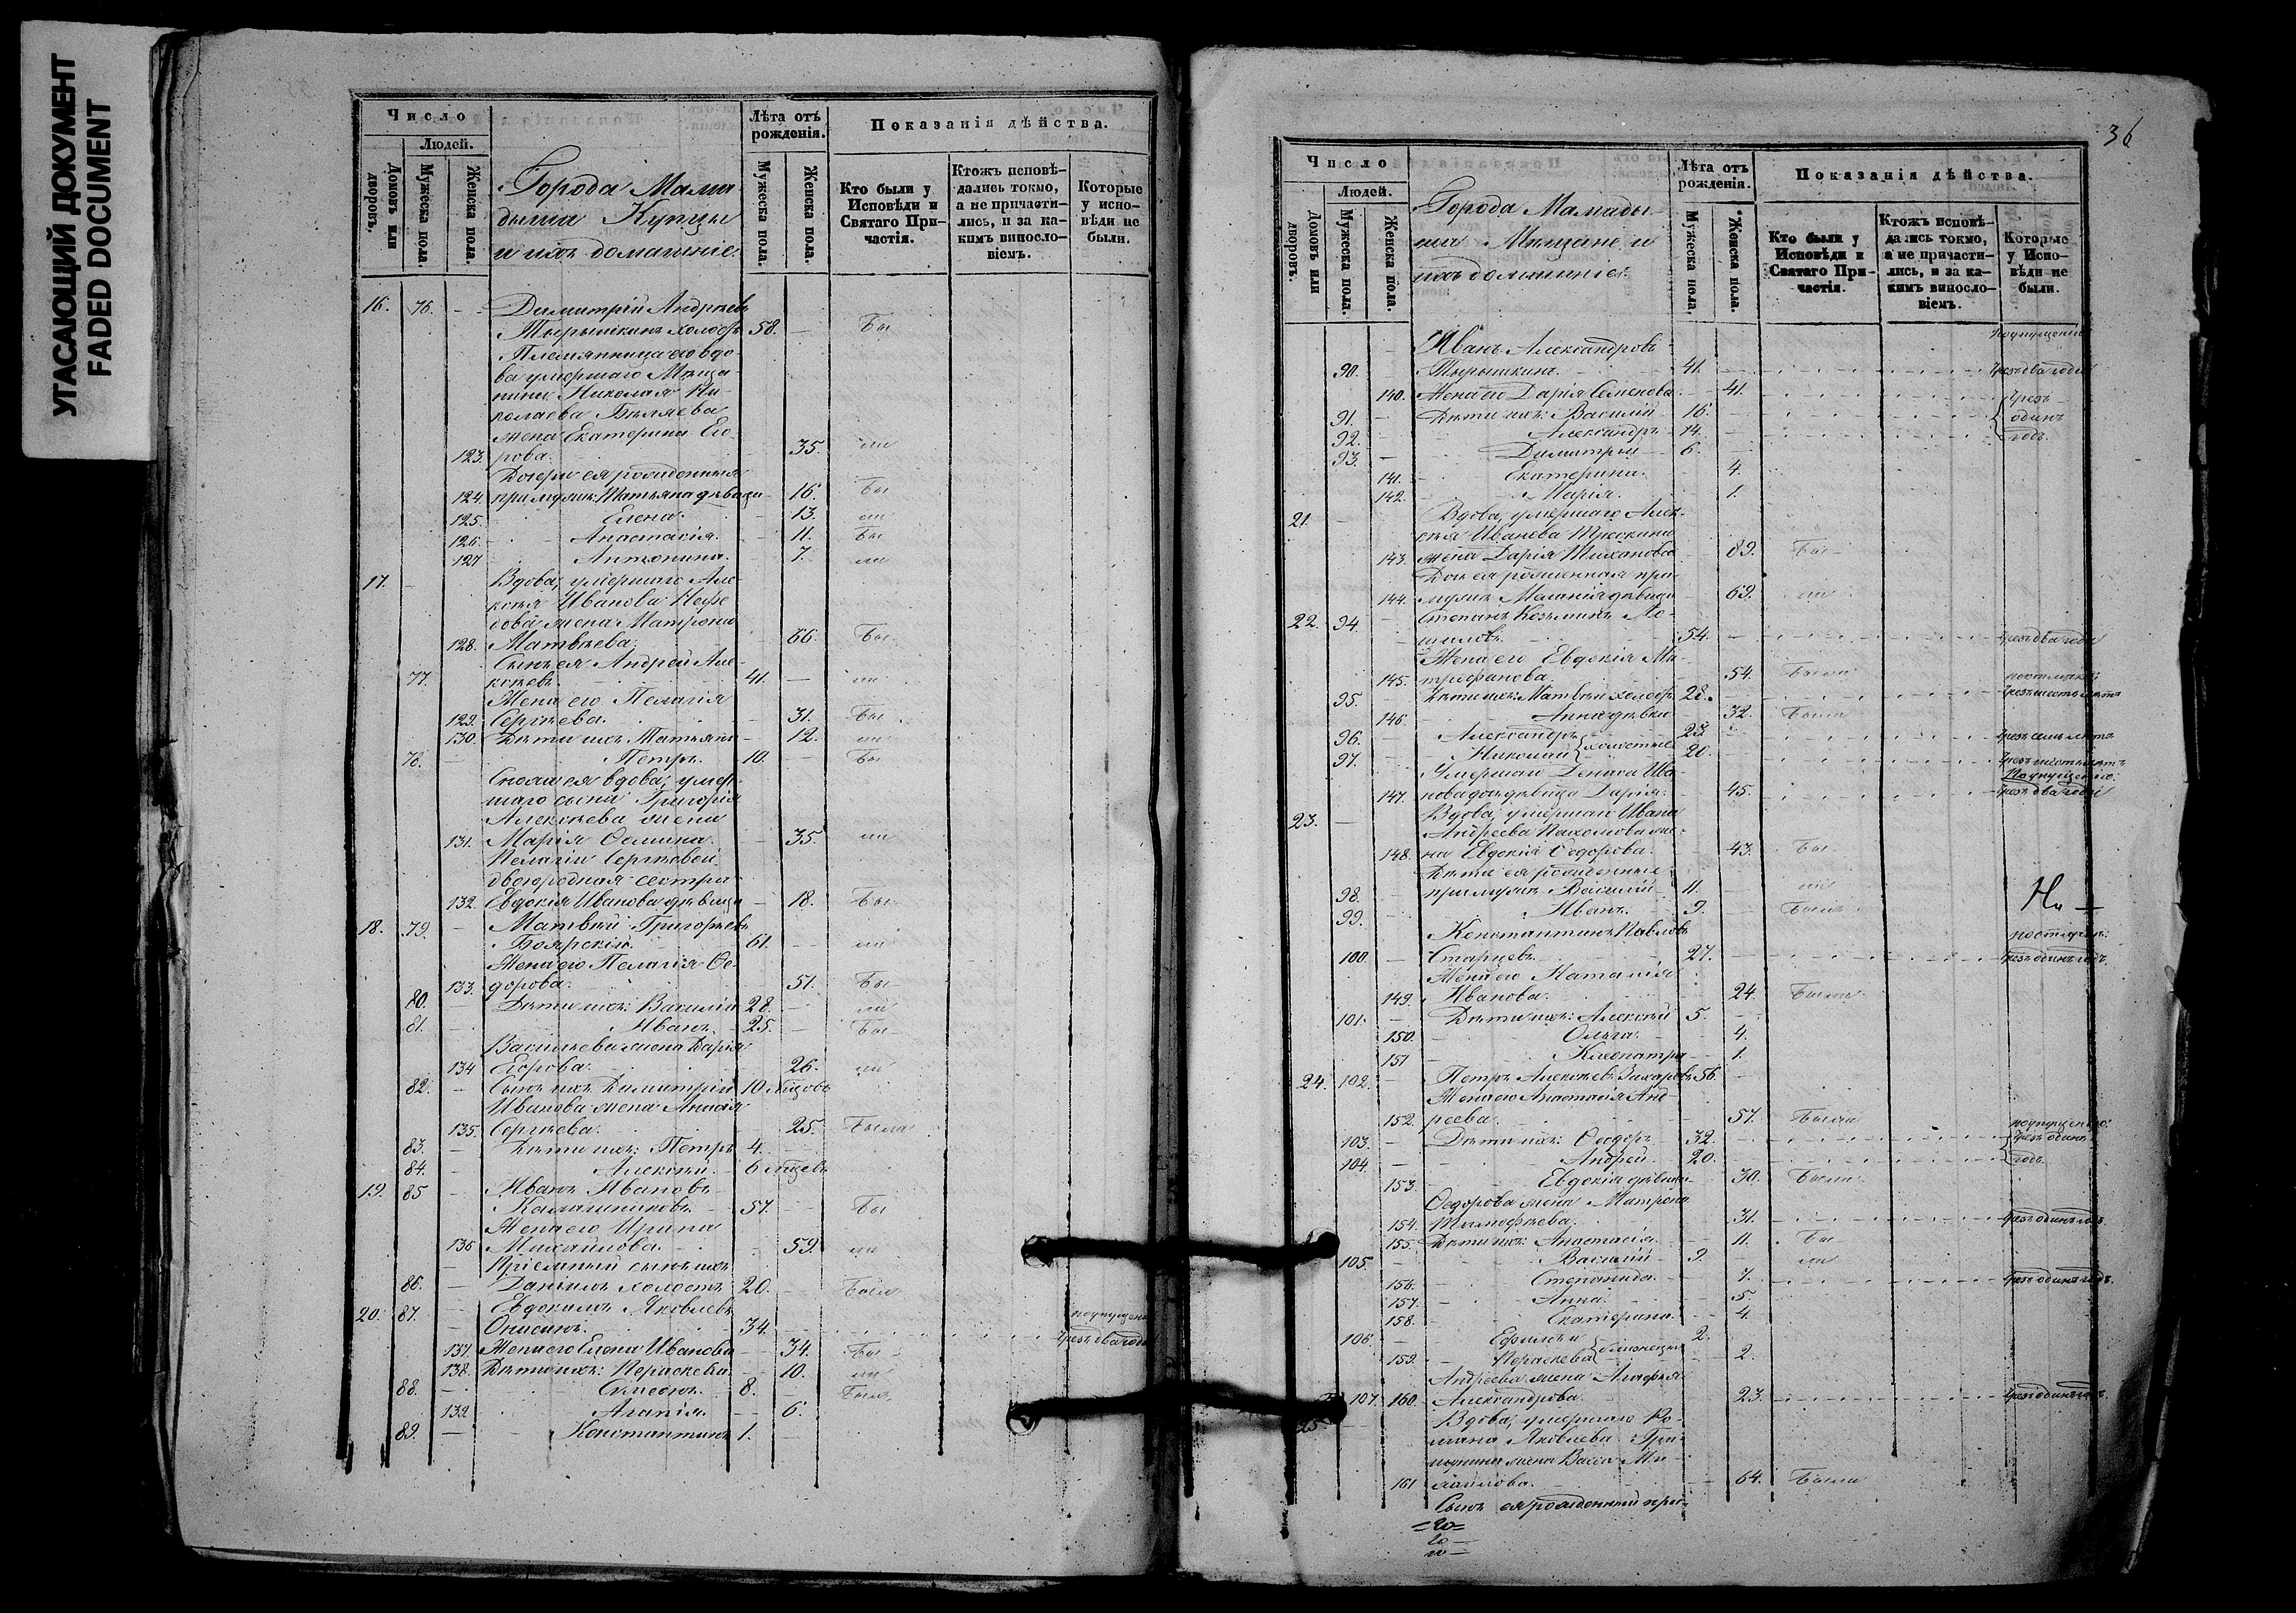 УГАСАЮЩИЙ ДОКУМЕНТ
FADED DOCUMENT
Число
Людей.
Домовъ или дворовъ.
Мужеска пола.
Женска пола.
Города Мама-
дыша Купцы
и ихъ домашніе.
Лѣта отъ рожденія.
Мужеска пола.
Женска пола.
Показанія дѣйства.
Кто были у Исповѣди и Святаго Причастія.
Ктожъ исповѣдались токмо, а не причастились, и за какимъ винословіемъ.
Которые у исповѣди не были.
16. 76. Димитрій Андреевъ
Тырышкинъ холостъ 58. Бы
Племянница его вдо-
ва умершаго Мѣща-
нина Николая Ни-
колаева Бѣляева
жена Екатерина Его-
123. рова. 35. ли
Дочери ея рожденныя
124. при мужѣ: Татьяна дѣвица 16. Бы
125. Елена. 13. ли
126. Анастасія. 11. Бы
127 Антонина. 7. ли
17. Вдова, умершаго Але-
ксѣя Иванова Нефе
дова жена Матрона
128. Матвѣева. 66. Бы
Сынъ ея Андрей Але-
77. ксѣевъ. 41. ли
Жена его Пелагія
129. Сергѣева. 31. Бы
130. Дѣти ихъ: Татьяна 12. ли
78. Петръ. 10. Бы
Сноха ея вдова, умер-
шаго сына Григорія
Алексѣева жена
131. Марія Ѳомина. 35. ли
Пелагіи Сергѣевой
двоюродная сестра
132. Евдокія Иванова дѣвица 18. Бы
18. 79. Матвѣй Григорьевъ
Боярскій. 61. ли
Жена его Пелагія Ѳе-
133. дорова. 51. Бы
80. Дѣти ихъ: Василій 28. ли
81. Иванъ. 25. Бы
Васильева жена Дарія
134 Егорова. 26. ли
82. Сынъ ихъ Димитрій 10 мѣсцовъ
Иванова жена Анисія
135. Сергѣева. 25. Была
83. Дѣти ихъ: Петръ 4.
84. Алексѣй. 6 мѣсцевъ
19. 85 Иванъ Ивановъ
Калашниковъ. 57. Бы
Жена его Ирина
136 Михайлова. 59. ли
Пріемный сынъ ихъ
86. Даніилъ холостъ 20. Были
20. 87. Евдокимъ Яковлевъ
Онисинъ. 34. по упущенію чрезъ два года
137. Жена его Елена Иванова 34. Бы
138. Дѣти ихъ: Параскева. 10. ли
88. Симеонъ. 8. Былъ
139. Агапія. 6.
89. Константинъ 1.
36
Число
Людей.
Домовъ или дворовъ.
Мужеска пола.
Женска пола.
Города Мамады-
ша Мѣщане и
ихъ домашніе.
Лѣта отъ рожденія.
Мужеска пола.
Женска пола.
Показанія дѣйства.
Кто были у Исповѣди и Святаго Причастія.
Ктожъ исповѣдались токмо, а не причастились, и за какимъ винословіемъ.
Которые у Исповѣди не были.
Иванъ Александровъ По упущенію
90. Тырышкинъ. 41. чрезъ два года
140. Жена его Дарія Семенова. 41.
91. Дѣти ихъ: Василій 16. чрезъ
92. Александръ 14. одинъ годъ.
93. Димитрій 6.
141. Екатерина. 4.
142. Марія. 1.
21. Вдова, умершаго Алек-
сѣя Иванова
143. жена Дарія Тиханова 89. Бы
Дочь ея рожденная при
144. мужѣ Меланія дѣвица 69. ли
22. 94. Степанъ Козьминъ Ло-
54. чрезъ два года
Жена его Евдокія Ми-
145. трофанова. 54. Была
95. Дѣти ихъ: Матвѣй холостъ 28. чрезъ шесть лѣтъ
146. Анна дѣвка 32. Была
96. Александръ 23. чрезъ семь лѣтъ
97. Николай холостые 20. чрезъ шесть лѣтъ
Умершаго Дениса Ива- По упущенію:
147. нова дочь дѣвица Дарія. 45. чрезъ два года
23. Вдова, умершаго Ивана
Андреева Пахомова же-
148. на Евдокія Ѳеодорова. 43. Бы
Дѣти ея рожденные
98. при мужѣ Василій 11. ли
99. Иванъ. 9. Былъ
Константинъ Павловъ
100 Старцевъ. 27. чрезъ одинъ годъ.
Жена его Наталія
149. Иванова. 24. Была
101. Дѣти ихъ: Алексѣй 5.
150. Ольга. 4.
151 Клеопатра 1.
24. 102. Петръ Алексѣевъ Захаровъ 56.
Жена его Анастасія Анд-
152. реева. 57. Была по упущенію:
103. Дѣти ихъ: Ѳеодоръ 32. чрезъ одинъ
104. Андрей. 20. годъ.
153. Евдокія дѣвица 30. Была
Ѳеодорова жена Матрона
154. Тимофѣева. 31. чрезъ одинъ годъ.
155. Дѣти ихъ: Анастасія. 11. Бы
105. Василій 9. ли
156. Степанида. 7. чрезъ одинъ годъ.
157. Анна. 5
158. Екатерина. 4.
106. Ефимъ и 2.
159. Параскева близнецы 2.
Андреева жена Агафья
107. 160. Александрова. 23. чрезъ одинъ годъ
25 Вдова, умершаго Ро-
мана Яковлева
жена Васса Ми-
161 хайлова. 64. Была
Сынъ ея рожденный при